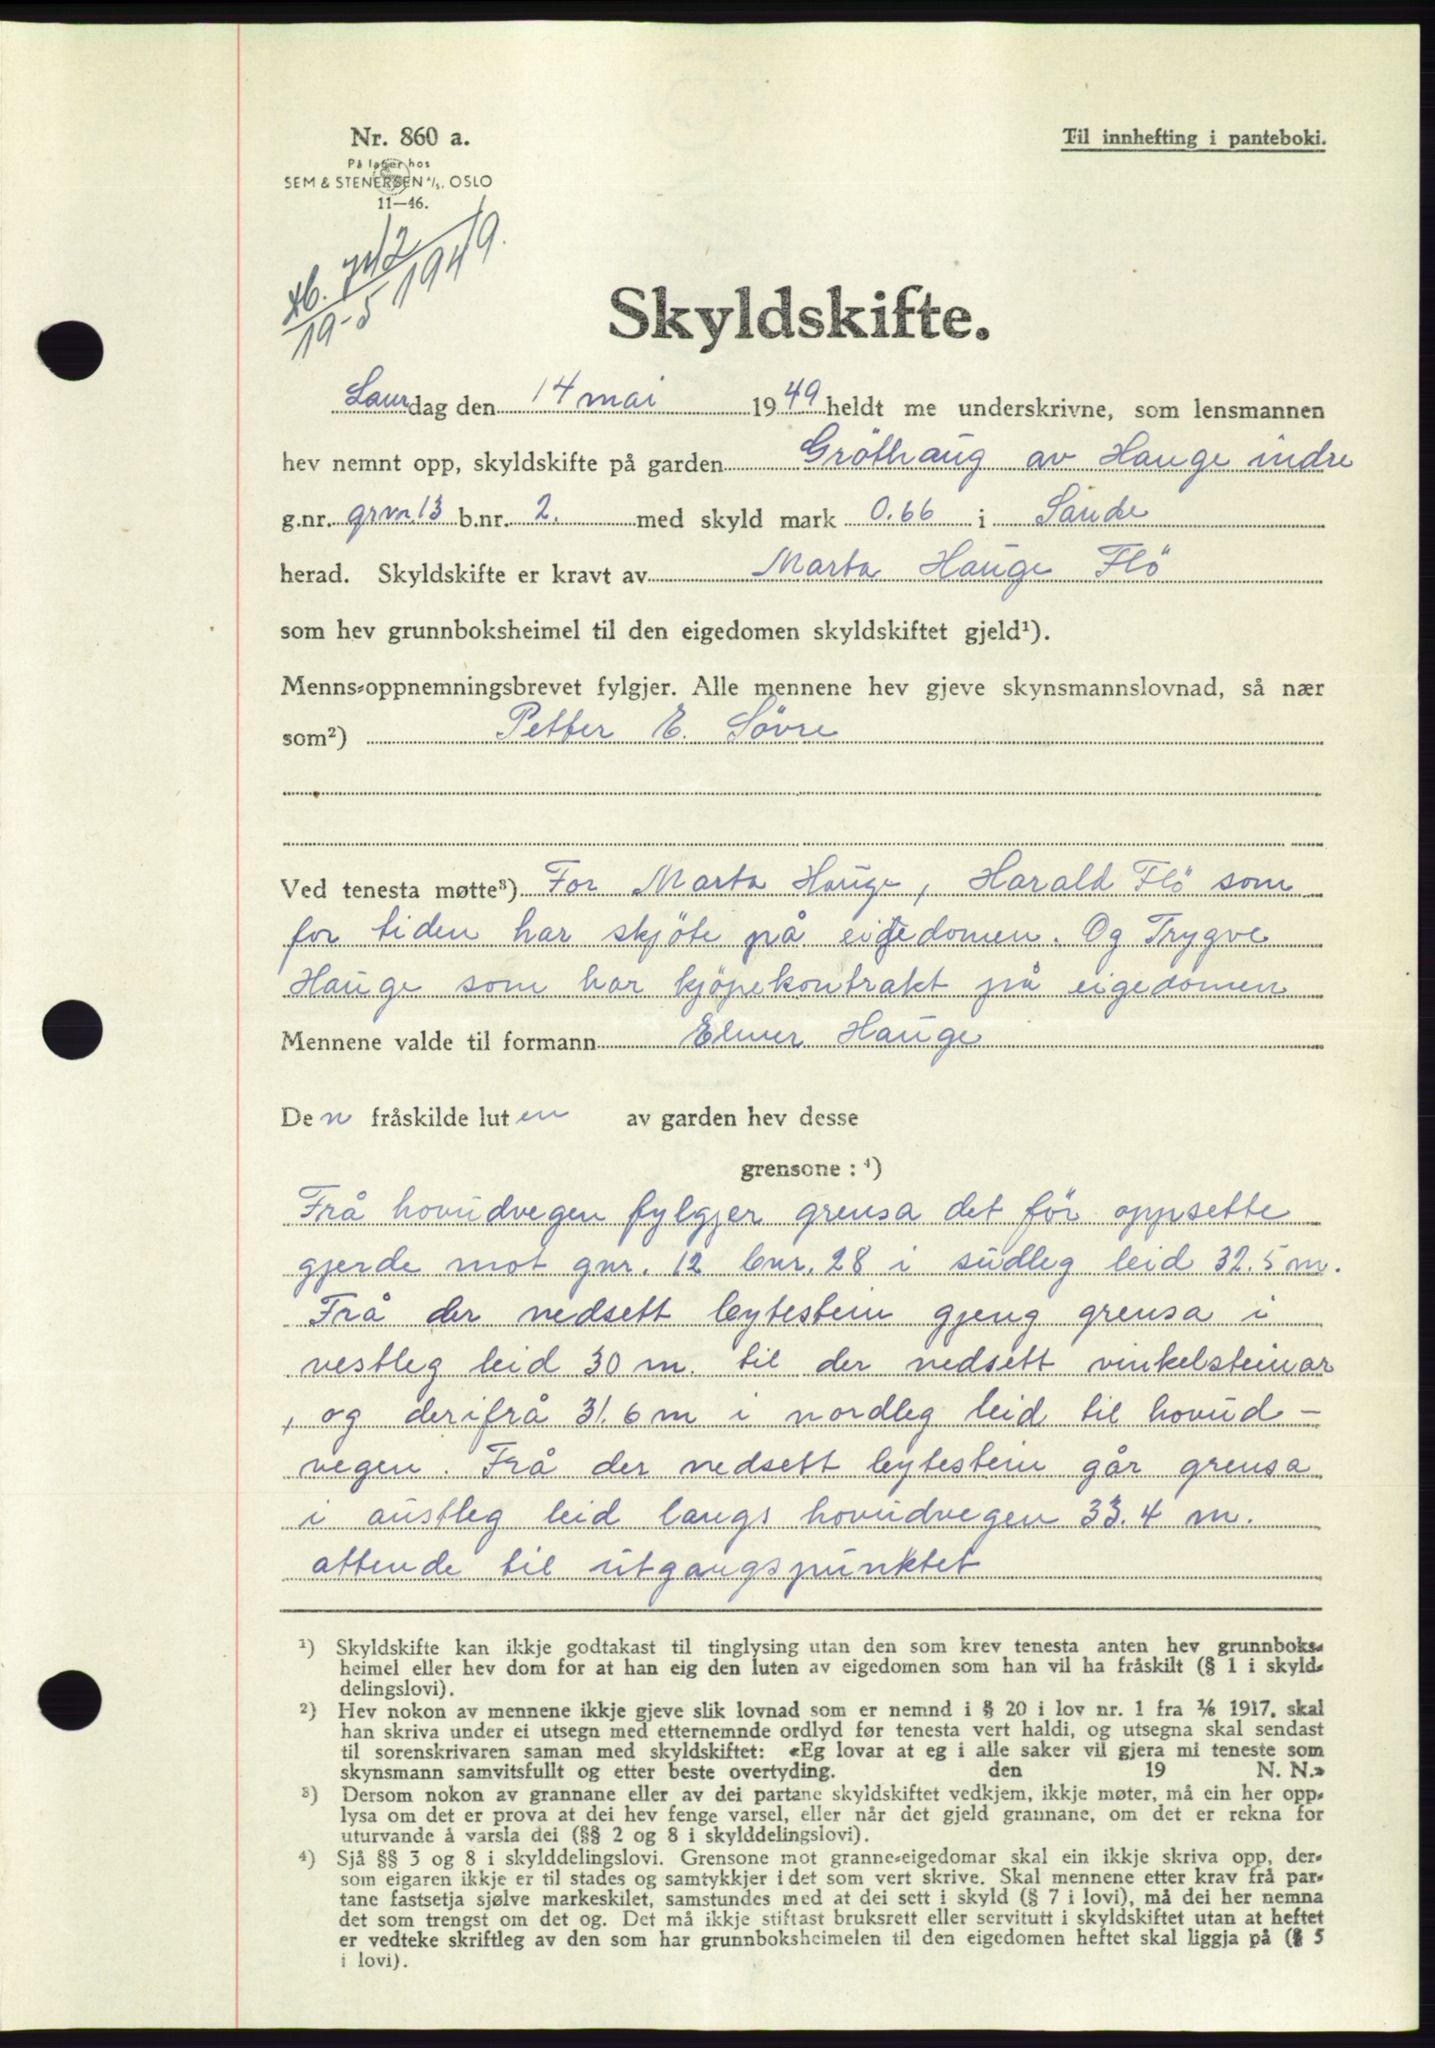 Nr. 860 a.
På lager hos
SEM & STENERSEN A/S, OSLO
11—46.
Til innhefting i panteboki.
19-5 1949.
Skyldskifte.
Laurdag den 14 mai 1949 heldt me underskrivne, som lensmannen
hev nemnt opp, skyldskifte på garden Gröthaug av Hauge indre
g.nr. grnr. 13 b.nr. 2. med skyld mark 0.66 i Sande
herad. Skyldskifte er kravt av Marta Hauge Flö
som hev grunnboksheimel til den eigedomen skyldskiftet gjeld¹).
Menns-oppnemningsbrevet fylgjer. Alle mennene hev gjeve skynsmannslovnad, så nær
som²) Petter E. Sövre
Ved tenesta møtte³) For Marta Hauge, Harald Flö som
for tiden har skjöte på eigedomen. Og Trygve
Hauge som har kjöpekontrakt på eigedomen
Mennene valde til formann Elmer Hauge
Den fråskilde luten av garden hev desse
grensone : ⁴)
Frå hovudvegen fylgjer grensa det för oppsette
gjerde mot gnr. 12 bnr. 28 i südleg leid 32.5 m.
Frå der nedsett bytestein gjeng grensa i
vestleg leid 30 m. til der nedsett vinkelsteinar
, og derifrå 31.6 m i nordleg leid til hovud-
vegen. Frå der nedsett bytestein går grensa
i austleg leid langs hovudvegen 33.4 m.
attende til utgangspunktet
¹) Skyldskifte kan ikkje godtakast til tinglysing utan den som krev tenesta anten hev grunnboks-
heimel eller hev dom for at han eig den luten av eigedomen som han vil ha fråskilt (§ 1 i skyld-
delingslovi).
²) Hev nokon av mennene ikkje gjeve slik lovnad som er nemnd i § 20 i lov nr. 1 fra 1/6 1917, skal
han skriva under ei utsegn med etternemnde ordlyd før tenesta vert haldi, og utsegna skal sendast
til sorenskrivaren saman med skyldskiftet: «Eg lovar at eg i alle saker vil gjera mi teneste som
skynsmann samvitsfullt og etter beste overtyding. den 19 N. N.»
³) Dersom nokon av grannane eller av dei partane skyldskiftet vedkjem, ikkje møter, må ein her opp-
lysa om det er prova at dei hev fenge varsel, eller når det gjeld grannane, om det er rekna for
uturvande å varsla dei (§§ 2 og 8 i skylddelingslovi).
⁴) Sjå §§ 3 og 8 i skylddelingslovi. Grensone mot granne-eigedomar skal ein ikkje skriva opp, der-
som eigaren ikkje er til stades og samtykkjer i det som vert skrive. Skal mennene etter krav frå par-
tane fastsetja sjølve markeskilet, samstundes med at dei sett i skyld (§ 7 i lovi), må dei her nemna
det som trengst om det og. Det må ikkje stiftast bruksrett eller servitutt i skyldskiftet utan at heftet
er vedteke skriftleg av den som har grunnboksheimelen til den eigedomen heftet skal liggja på (§ 5
i lovi).